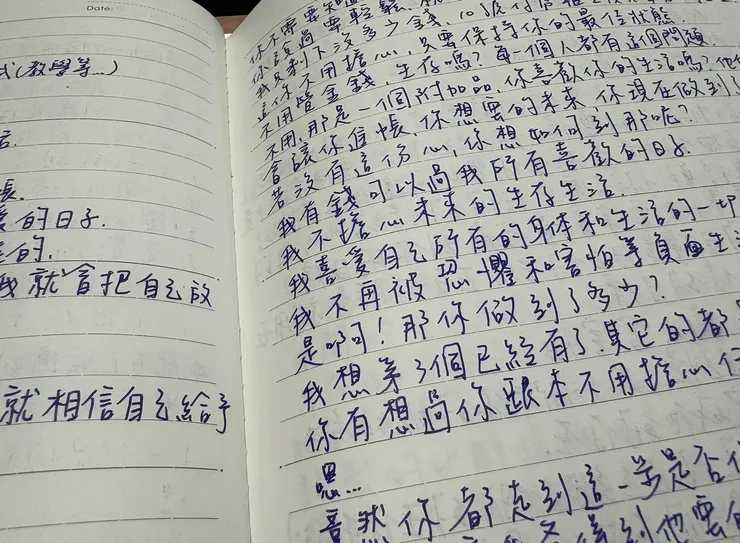 Date:
式(教學等...)
的日子.
的.
我就會把自己放
就相信自己給予
你不需要知道
你說過要輕鬆.
我只剩下沒多少錢、10號付信
這你不用擔心,只要保持你的最佳狀態.
不用管金錢、生存嗎?每一個人都有這個問題
不用,那是一個附加品,你喜歡你的生活嗎?他
會讓你進帳,你想要的未來 你現在做到了
若沒有這份心,你想如何到那呢?
我有錢可以過我所有喜歡的日子.
我不擔心未來的生存生活.
我喜愛自己所有的身体和生活的一切
我不再被恐懼和害怕等負面生活
是啊!那你做到了多少?
我想第3個已經有了.其它的都
你有想過你跟本不用擔心任
恩...
竟然你都走到這一步是否
得到他要的